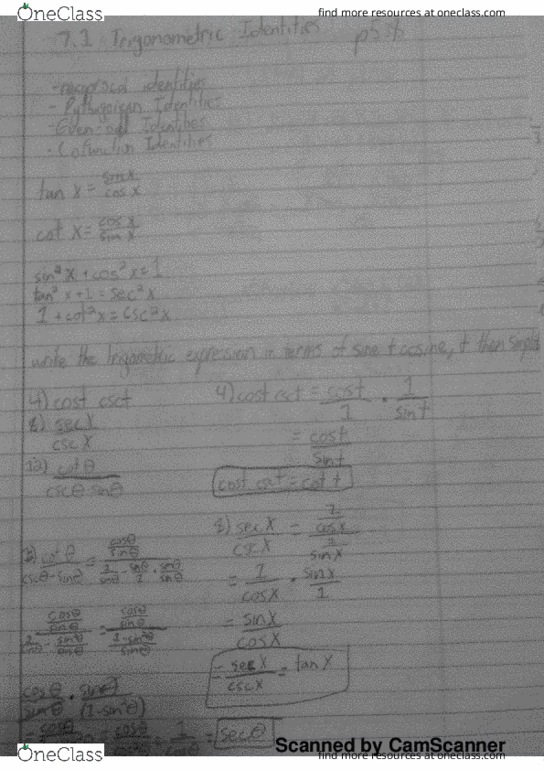 OneClass
find more resources at oneclass.com
7.1 Trigonometric Identities
- reciprocal identities
- Pythagorean Identities
- Even-odd Identities
- Cofunction Identities
tan x = sin x / cos x
cot x = cos x / sin x
sin² x + cos² x = 1
tan² x + 1 = sec² x
1 + cot² x = csc² x
write the trigometric expression in terms of sine + cosine, + then simplify
4) cost csct
8) sec X / csc X
12) cot θ / cscθ - sinθ
4) cost csct = cost / 1 · 1 / sin t
= cost / sin t
cost csct = cot t
8) sec X / csc X = 1 / cos X / 1 / sin X
= 1 / cos X · sin X / 1
= sin X / cos X
= sec X / csc X = tan X
cot θ / cscθ - sinθ = cosθ / sinθ / 1 / sinθ - sinθ / 1 · sinθ / sinθ
cosθ / sinθ · sinθ / (1 - sin²θ)
= secθ
Scanned by CamScanner
OneClass
find more resources at oneclass.com